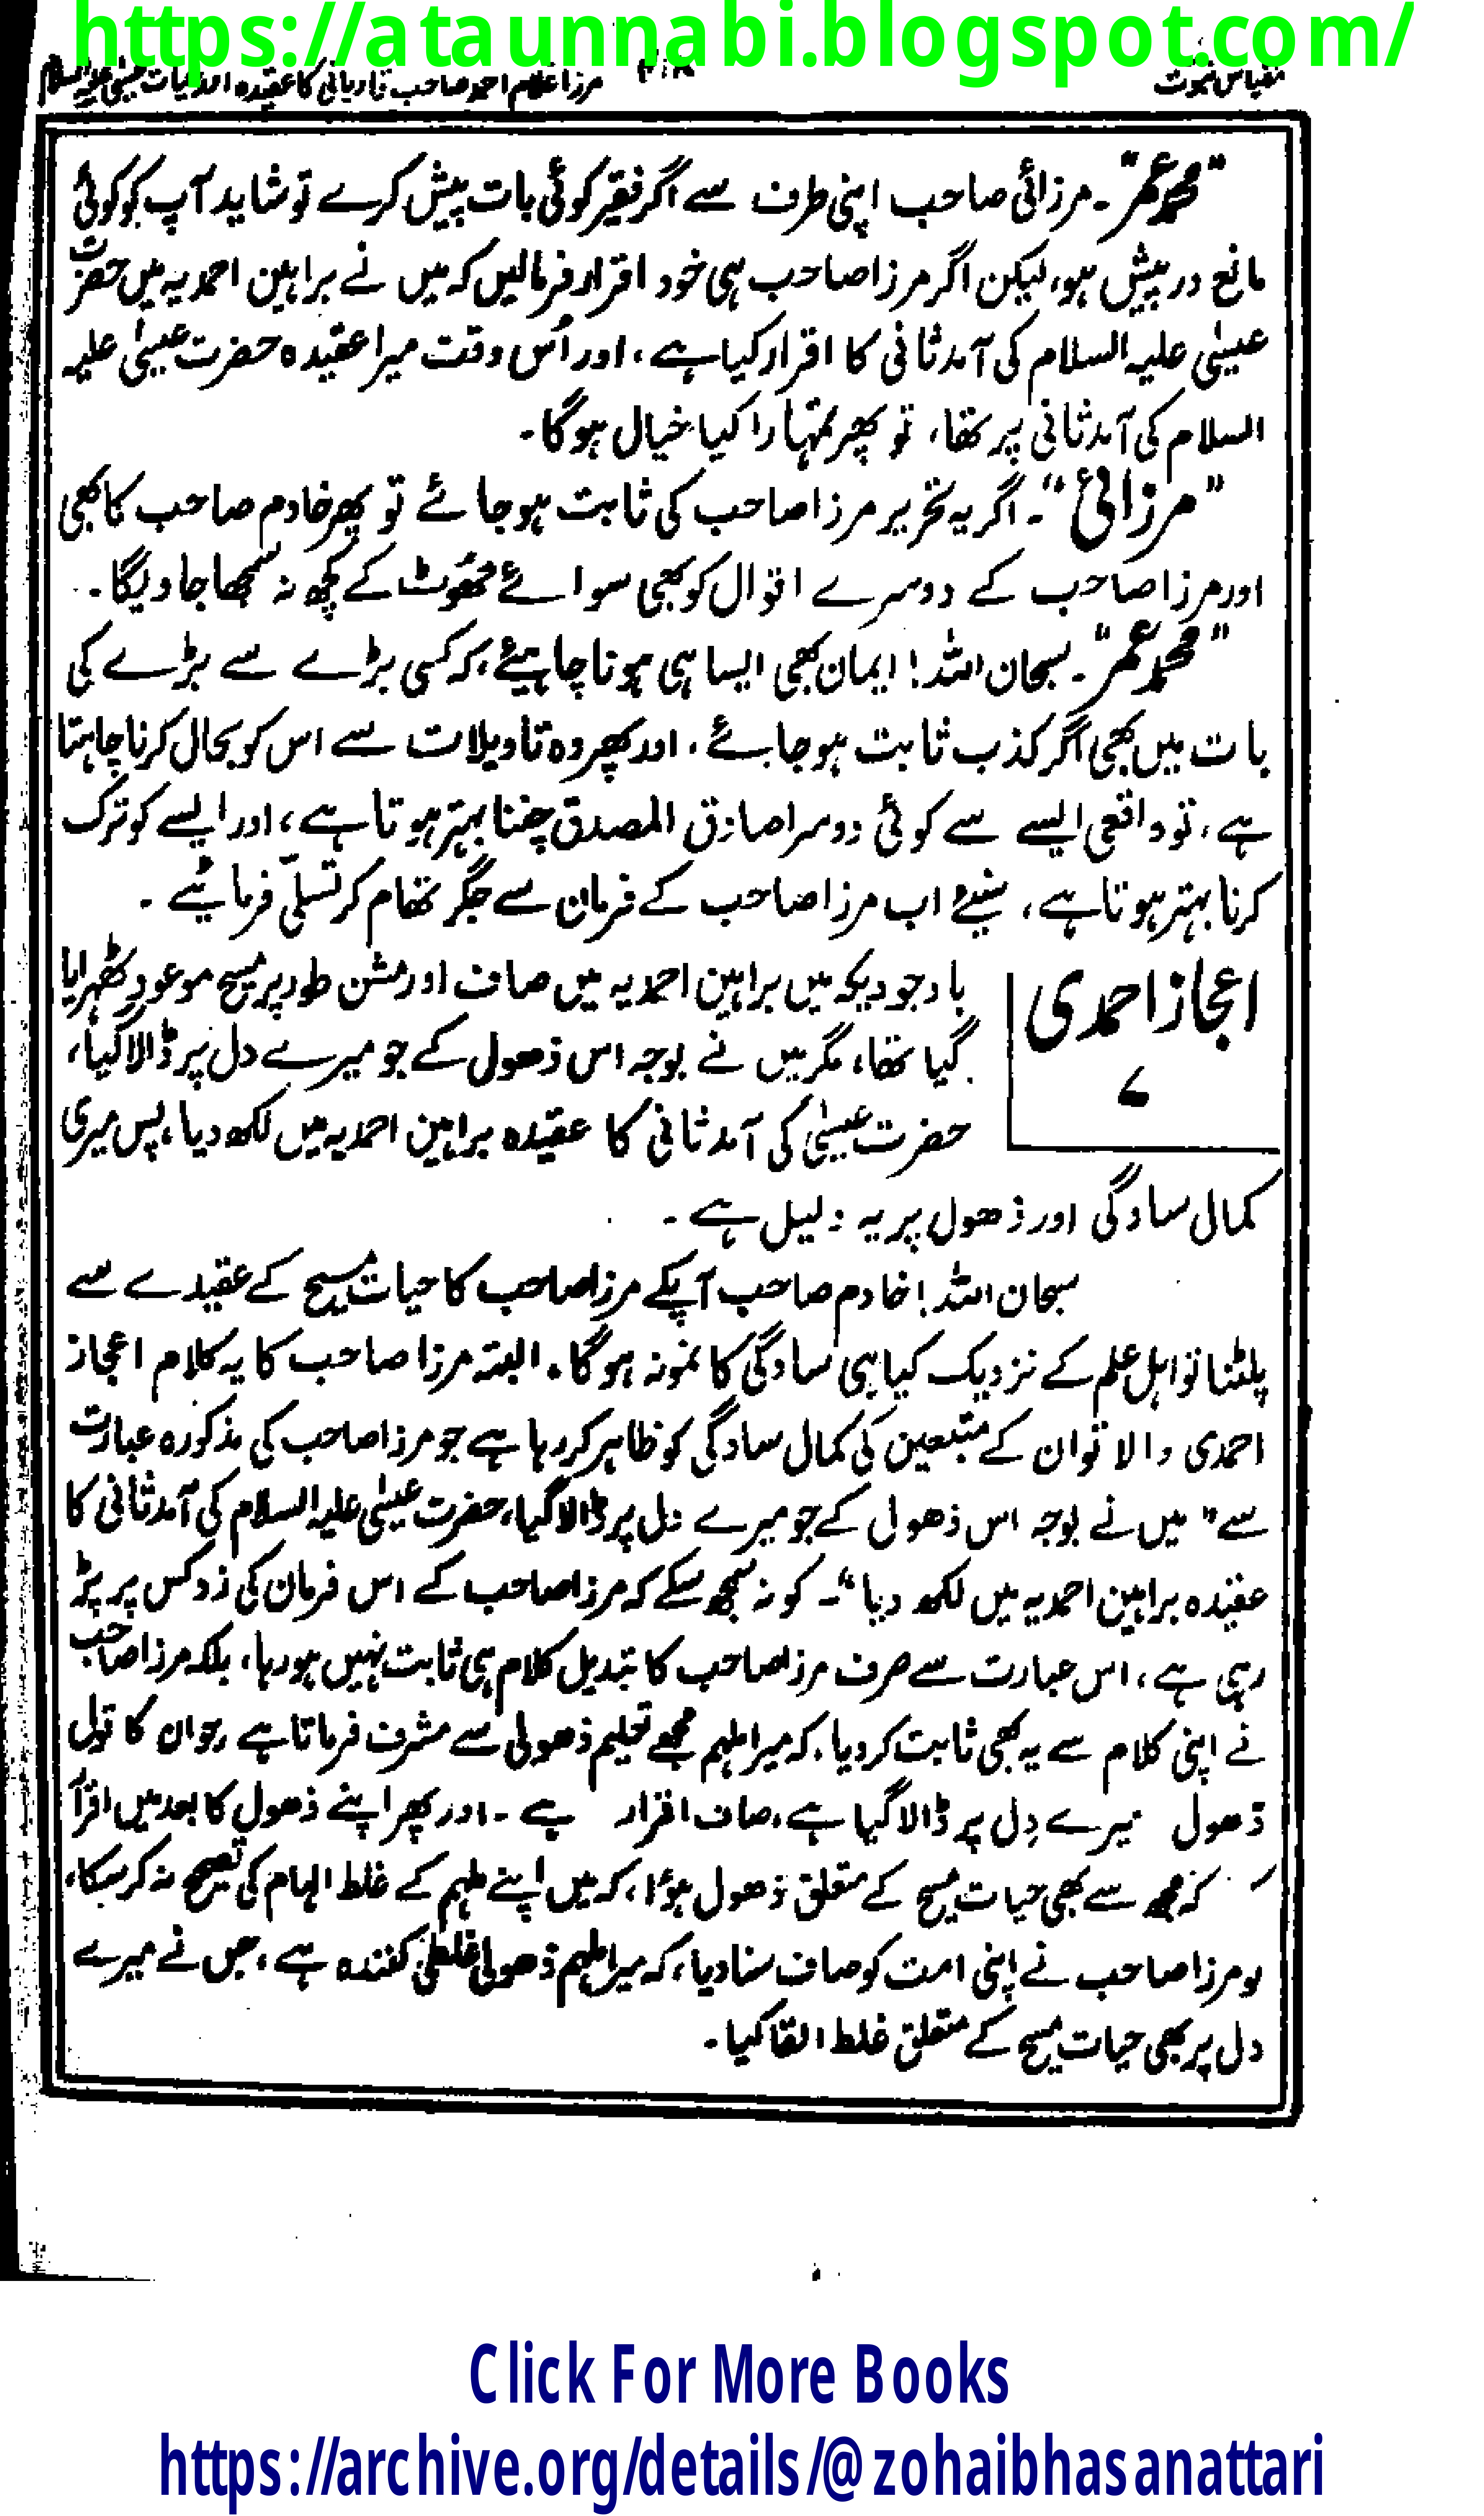 https://ataunnabi.blogspot.com/
مقیاس نبوت
مرزا غلام احمد صاحب قادیانی کا عقیدہ اور حیات عیسیٰ علیہ السلام
"محمد عمرؔ"۔ مرزائی صاحب اپنی طرف سے اگر فقیر کوئی بات پیش کرے تو شاید آپ کو کوئی
مانع درپیش ہو، لیکن اگر مرزا صاحب ہی خود اقرار فرمالیں کہ میں نے براہین احمدیہ میں حضرت
عیسیٰ علیہ السلام کی آمد ثانی کا اقرار کیا ہے، اور اُس وقت میرا عقیدہ حضرت عیسیٰ علیہ
السلام کی آمد ثانی پر تھا، تو پھر تمہارا کیا خیال ہوگا۔
"مرزائی"۔ اگر یہ تحریر مرزا صاحب کی ثابت ہو جائے تو پھر خادم صاحب کا بھی
اور مرزا صاحب کے دوسرے اقوال کو بھی سوائے جھوٹ کے کچھ نہ سمجھا جاویگا۔
"محمد عمرؔ"۔ سبحان اللہ! ایمان بھی ایسا ہی ہونا چاہیئے، کہ کسی بڑے سے بڑے کی
بات میں بھی اگر کذب ثابت ہو جائے، اور پھر وہ تاویلات سے اس کو بحال کرنا چاہتا
ہے، تو واقعی ایسے سے کوئی دوسرا صادق المصدق چننا بہتر ہوتا ہے، اور ایسے کو ترک
کرنا بہتر ہوتا ہے، سنیئے اب مرزا صاحب کے فرمان سے جگر تھام کر تسلّی فرمائیے۔
اعجاز احمدی
۷
باوجودیکہ میں براہین احمدیہ میں صاف اور روشن طور پر مسیح موعود ٹھہرایا
گیا تھا، مگر میں نے بوجہ اس ذھول کے جو میرے دل پر ڈالا گیا،
حضرت عیسیٰ کی آمد ثانی کا عقیدہ براہین احمدیہ میں لکھ دیا، پس میری
کمال سادگی اور ذھول پر یہ دلیل ہے۔
سبحان اللہ! خادم صاحب آپکے مرزا صاحب کا حیات مسیح کے عقیدے سے
پلٹنا تو اہل علم کے نزدیک کیا ہی سادگی کا نمونہ ہوگا۔ البتہ مرزا صاحب کا یہ کلام اعجاز
احمدی والا تو ان کے متبعین کی کمال سادگی کو ظاہر کر رہا ہے جو مرزا صاحب کی مذکورہ عبارت
سے "میں نے بوجہ اس ذھول کے جو میرے دل پر ڈالا گیا، حضرت عیسیٰ علیہ السلام کی آمد ثانی کا
عقیدہ براہین احمدیہ میں لکھ دیا"۔ کو نہ سمجھ سکے کہ مرزا صاحب کے اس فرمان کی زد کس پر پڑ
رہی ہے، اس عبارت سے صرف مرزا صاحب کا تبدیل کلام ہی ثابت نہیں ہو رہا، بلکہ مرزا صاحب
نے اپنی کلام سے یہ بھی ثابت کر دیا، کہ میرا ملہم مجھے تعلیم ذھولی سے مشرف فرماتا ہے، جو ان کا قول
ذھول میرے دِل پر ڈالا گیا ہے، صاف اقرار ہے۔ اور پھر اپنے ذھول کا بعد میں اقرار
کہ مجھ سے بھی حیات مسیح کے متعلق ذھول ہؤا، کہ میں اپنے ملہم کے غلط الہام کی تصحیح نہ کر سکا،
تو مرزا صاحب نے اپنی امت کو صاف سنا دیا، کہ میرا ملہم ذھولی غلطی کنندہ ہے، جس نے میرے
دل پر بھی حیات مسیح کے متعلق غلط القا کیا۔
Click For More Books
https://archive.org/details/@zohaibhasanattari